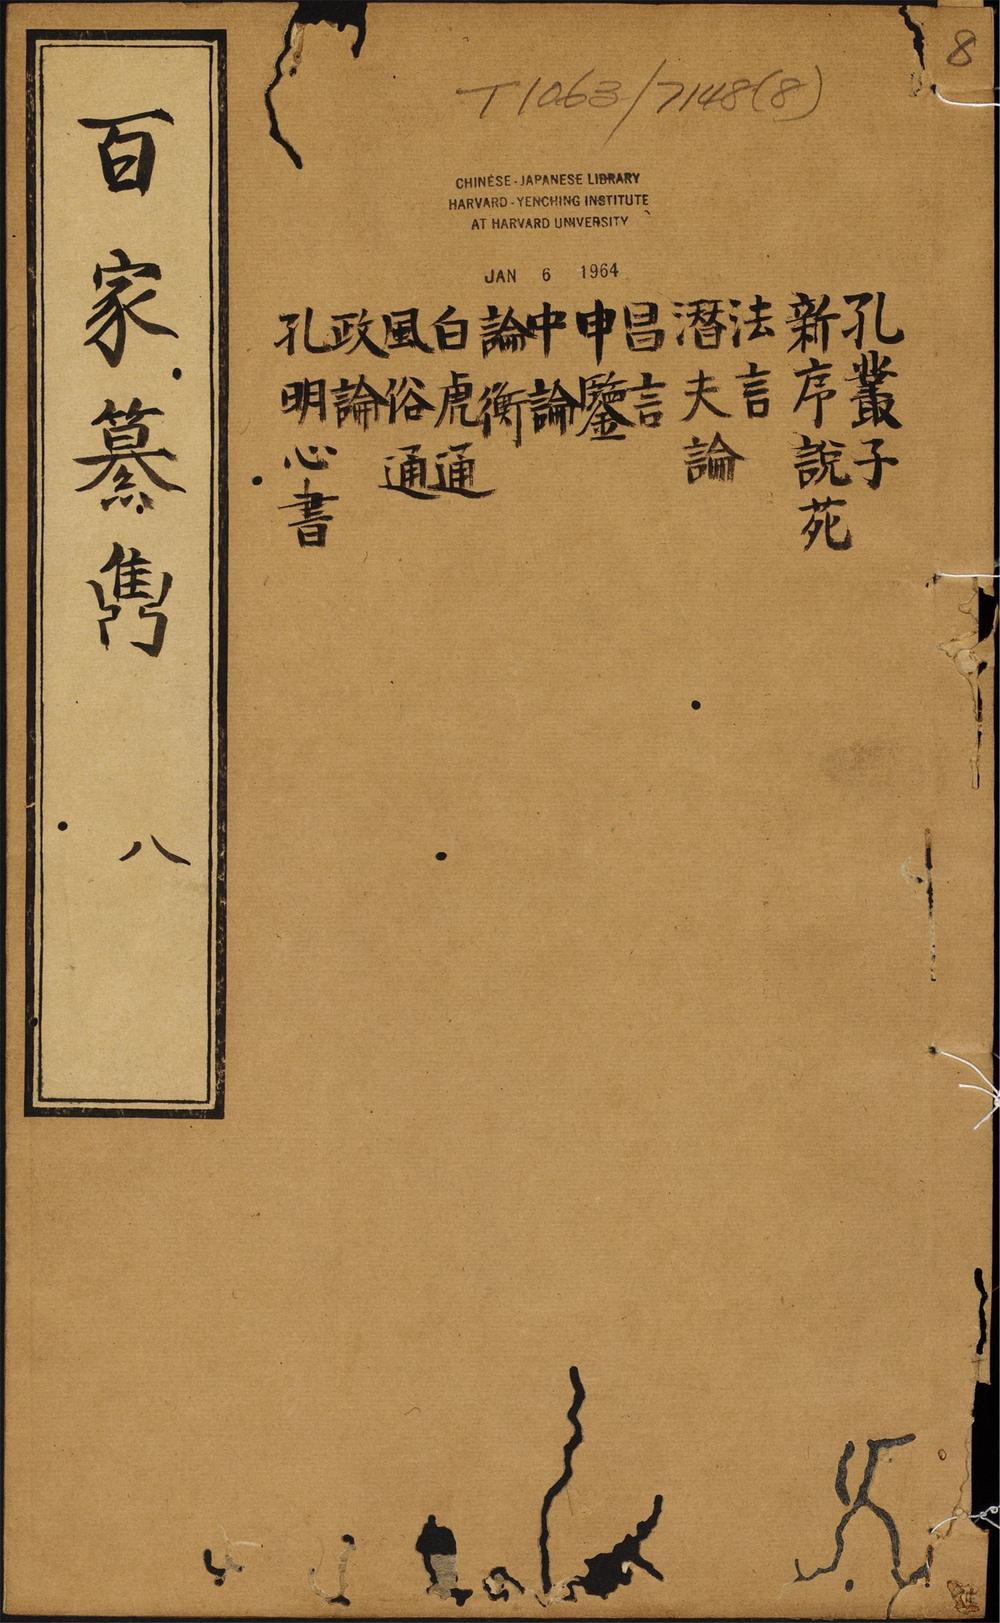 8
T1063/7148(8)
CHINESE-JAPANESE LIBRARY
HARVARD-YENCHING INSTITUTE
AT HARVARD UNIVERSITY
JAN 6 1964
孔叢子
新序說苑
法言
潛夫論
昌言
申鑒
中論
論衡
白虎通
風俗通
政論
孔明心書
百家纂雋
八